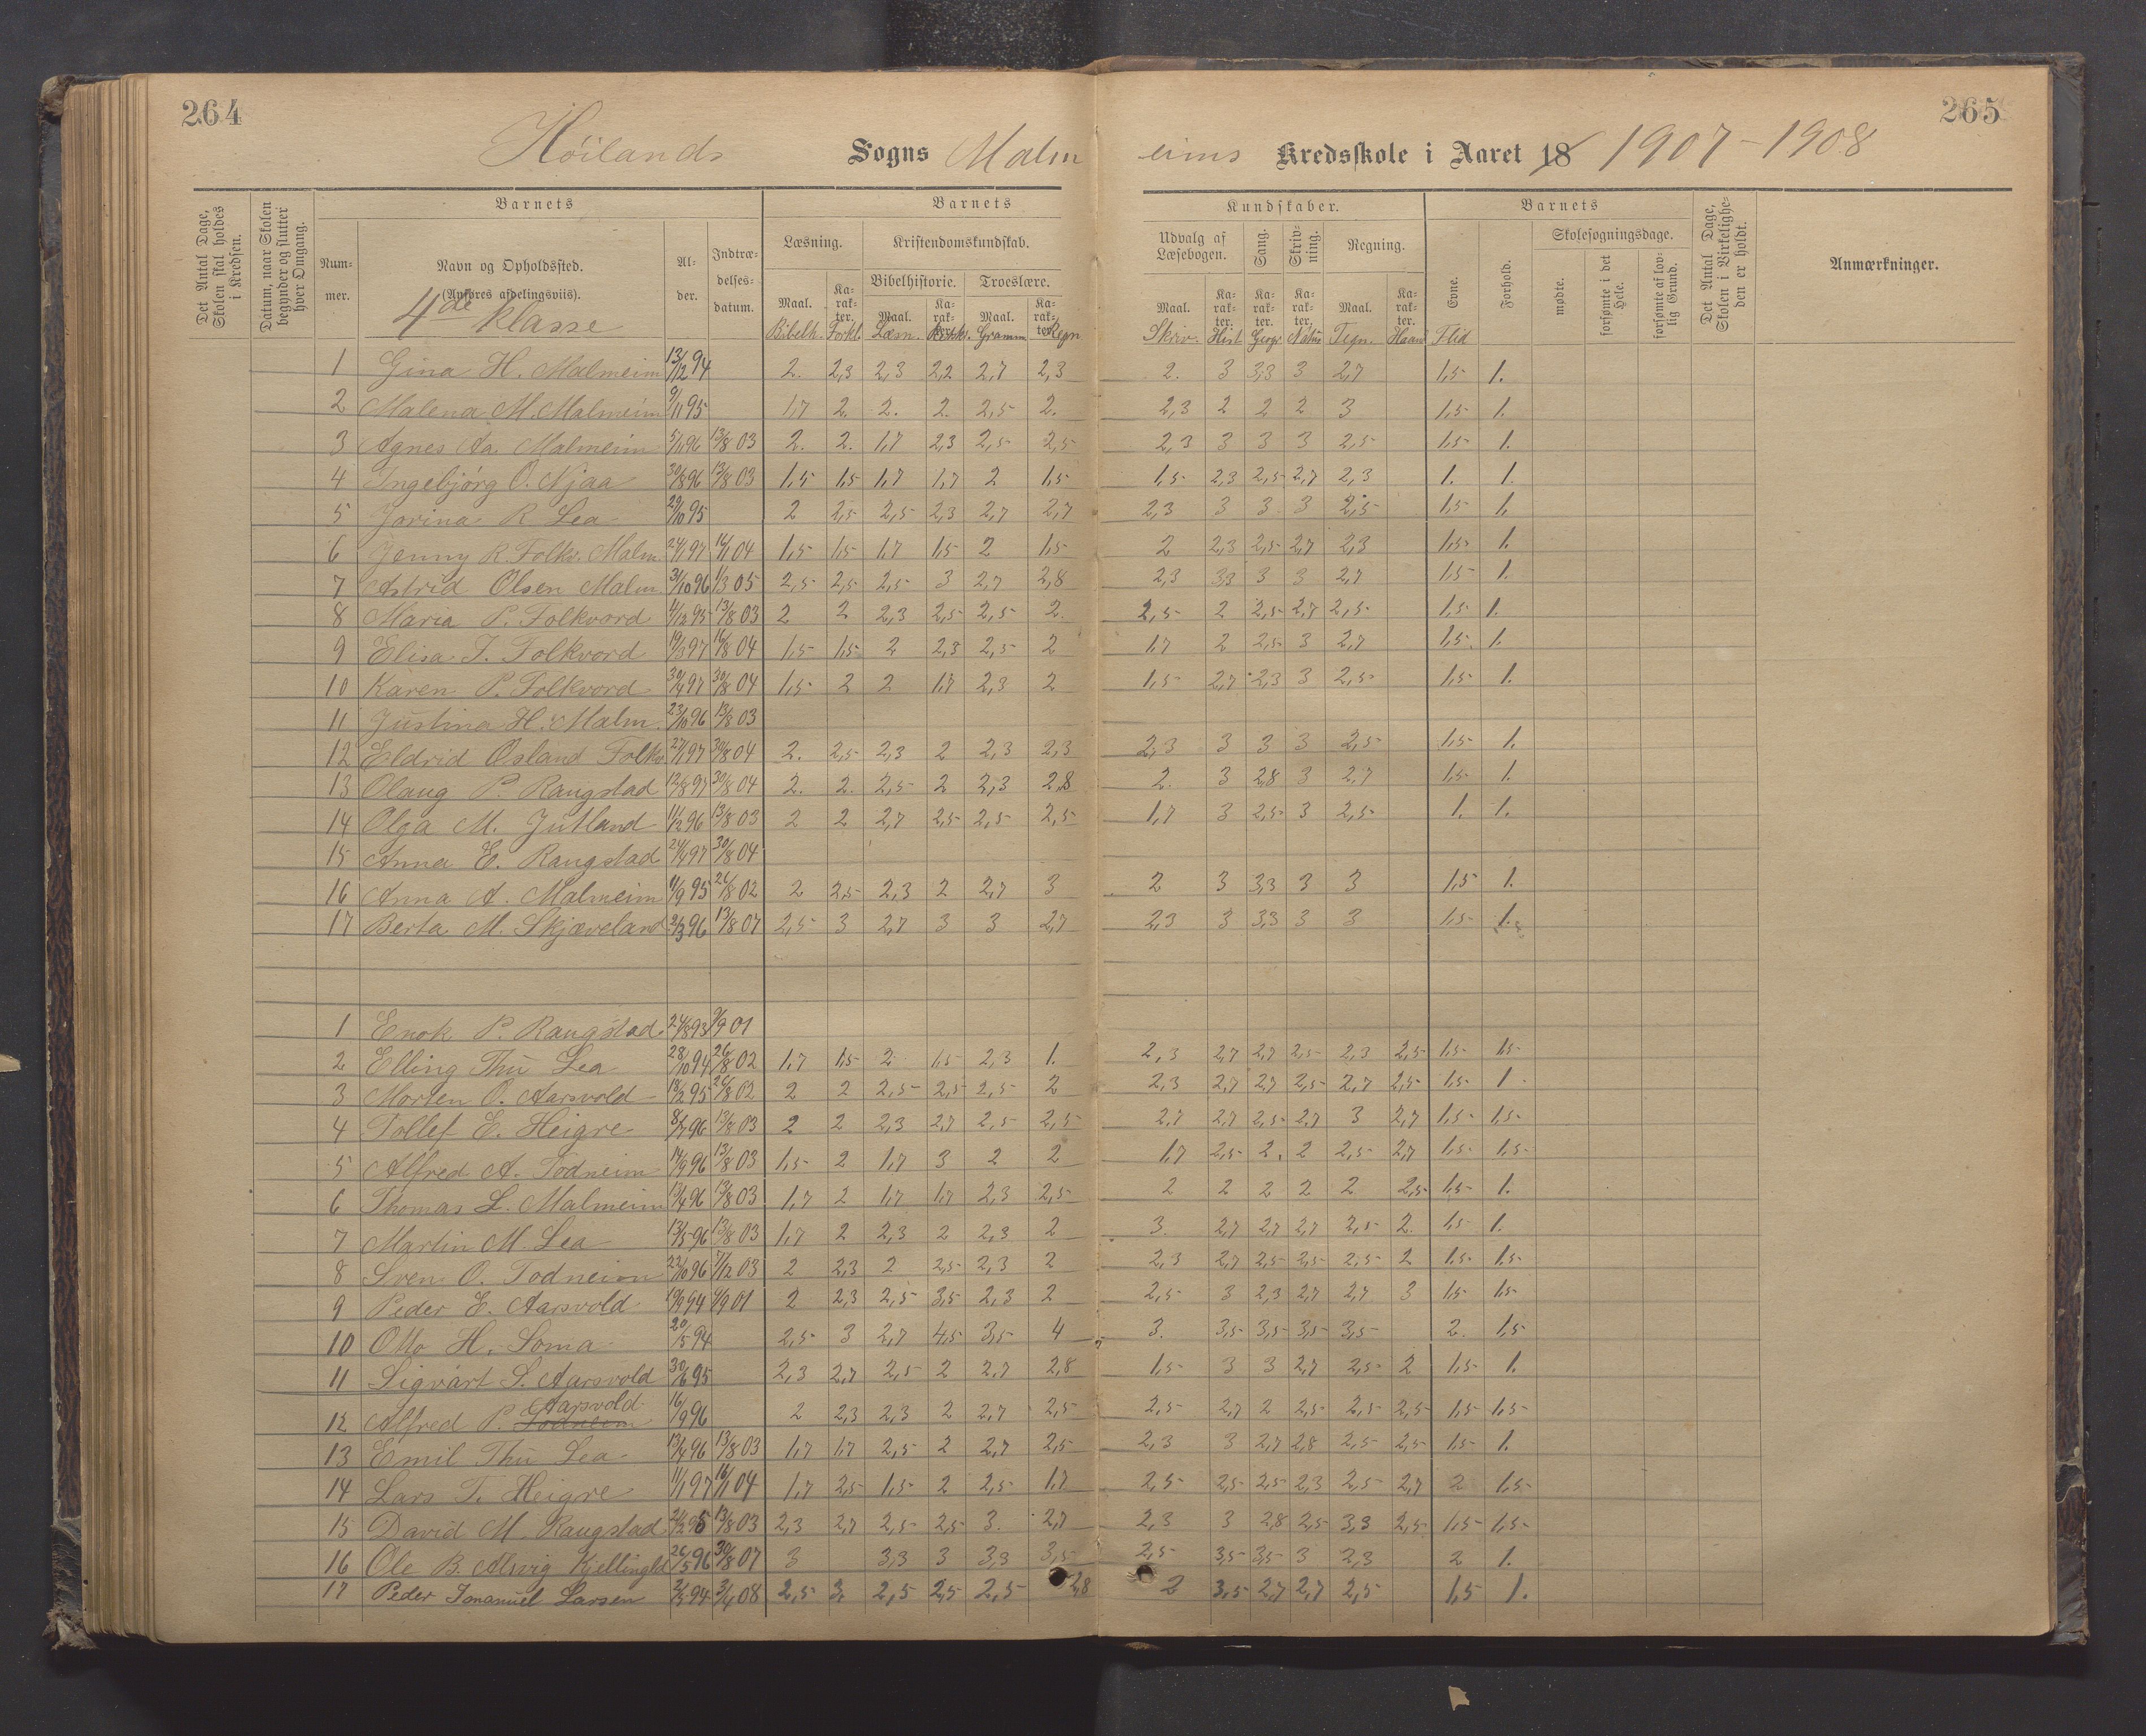 264
265
Höilands Sogns Malmeims Kredsskole i Aaret 18 1907-1908
Det Antal Dage, Skolen skal holdes i Kredsen.
Datum, naar Skolen begynder og slutter hver Omgang.
Barnets
Barnets
Kundskaber.
Barnets
Det Antal Dage, Skolen i Virkeligheden er holdt.
Anmærkninger.
Nummer.
Navn og Opholdssted.
(Anføres afdelingsviis).
4de Klasse
Alder.
Indtrædelsesdatum.
Læsning.
Kristendomskundskab.
Bibelhistorie.
Troeslære.
Udvalg af Læsebogen.
Sang.
Skrivning.
Regning.
Evne.
Forhold.
Skolesøgningsdage.
mødte.
forsømte i det Hele.
forsømte af lovlig Grund.
Maal. Karakter. Maal. Karakter. Maal. Karakter. Maal. Karakter. Karakter. Karakter. Maal. Karakter.
Bibelh. Forkl. Læsn. Gramm Regn Skriv. Hist Geogr Natur Tegn. Haan Flid
1 Gina H. Malmeim 13/12 94 2. 2,3 2,3 2,2 2,7 2,3 2. 3 3,3 3 2,7 1,5 1.
2 Malena M. Malmeim 9/11 95 1,7 2. 2. 2. 2,5 2. 2,3 2 2 2 3 1,5 1.
3 Agnes Aa. Malmeim 5/1 96 13/8 03 2. 2. 1,7 2,3 2,5 2,5 2,3 3 3 3 2,5 1,5 1.
4 Ingebjörg O. Njaa 30/8 96 13/8 03 1,5 1,5 1,7 1,7 2 1,5 1,5 2,3 2,5 2,7 2,3 1. 1.
5 Jorina R Lea 29/10 95 2 2,5 2,5 2,3 2,7 2,7 2,3 3 3 3 2,5 1,5 1.
6 Jenny R. Folkv. Malm. 24/1 97 16/1 04 1,5 1,5 1,7 1,5 2 1,5 2 2,3 2,5 2,7 2,3 1,5 1.
7 Astrid Olsen Malm. 31/10 96 1/3 05 2,5 2,5 2,5 3 2,7 2,8 2,3 3,3 3 3 2,7 1,5 1.
8 Maria P. Folkvord 4/12 95 13/8 03 2 2 2,3 2,5 2,5 2. 2,5 2 2,5 2,7 2,5 1,5 1.
9 Elisa T. Folkvord 19/3 97 16/8 04 1,5 1,5 2 2,3 2,5 2 1,7 2 2,5 3 2,7 1,5. 1.
10 Karen P. Folkvord 30/4 97 30/8 04 1,5 2 2 1,7 2,3 2 1,5 2,7 2,3 3 2,5 1,5 1.
11 Justina H. Malm. 23/10 96 13/8 03
12 Eldrid Osland Folkv. 27/1 97 30/8 04 2. 2,5 2,3 2 2,3 2,3 2,3 3 3 3 2,5 1,5 1.
13 Olaug P. Raugstad 12/8 97 30/8 04 2. 2. 2,5 2 2,3 2,8 2. 3 2,8 3 2,7 1,5 1.
14 Olga M. Jutland 11/12 96 13/8 03 2 2 2,7 2,5 2,5 2,5 1,7 3 2,5 3 2,5 1. 1.
15 Anna E. Raugstad 24/4 97 30/8 04
16 Anna A. Malmeim 11/9 95 26/8 02 2 2,5 2,3 2 2,7 3 2 3 3,3 3 3 1,5 1.
17 Berta M. Skjæveland 2/3 96 13/8 07 2,5 3 2,7 3 3 2,7 2,3 3 3,3 3 3 1,5 1.
1 Enok P. Raugstad. 24/8 93 9/9 01
2 Elling Thu Lea 28/10 94 26/8 02 1,7 1,5 2 1,5 2,3 1. 2,3 2,7 2,7 2,5 2,3 2,5 1,5 1,5
3 Morten O. Aarsvold 18/12 95 26/8 02 2 2 2,5 2,5 2,5 2 2,3 2,7 2,7 2,5 2,7 2,5 1,5 1
4 Tollef E. Heigre 8/7 96 13/8 03 2 2 2,3 2,7 2,5 2,5 2,7 2,7 2,5 2,7 3 2,7 1,5 1,5
5 Alfred A. Todneim 14/9 96 13/8 03 1,5 2 1,7 3 2 2 1,7 2,5 2. 2 2,5 2,7 1,5 1,5
6 Thomas L. Malmeim 13/4 96 13/8 03 1,7 2 1,7 1,7 2,3 2,5 2 2 2 2 2 2,5 1,5 1.
7 Martin M. Lea 13/5 96 13/8 03 1,7 2 2,3 2 2,3 2 3. 2,7 2,7 2,7 2,5 2. 1,5 1.
8 Sven O. Todneim 22/10 96 7/12 03 2 2,3 2 2,5 2,3 2 2,3 2,7 2,5 2,5 2,5 2 1,5 1,5
9 Peder E. Aarsvold 19/9 94 9/9 01 2 2,3 2,5 3,5 2,3 2 2,5 3 2,3 2,7 2,7 3 1,5 1,5
10 Otto H. Soma 20/5 94 2,5 3 2,7 4,5 3,5 4 3. 3,5 3,5 3,5 3,5 2. 1,5
11 Sigvart S. Aarsvold 30/6 95 2,3 2,7 2,5 2 2,7 2,8 1,5 3 3 2,7 2,5 2 1,5 1.
12 Alfred P. Todneim Aarsvold 16/9 96 2 2,3 2,3 2 2,7 2,5 2,5 2,7 2 2,5 2,5 2,5 1,5 1,5
13 Emil Thu Lea 13/4 96 13/8 03 1,7 1,7 2,5 2 2,7 2,5 2,3 3 2,7 2,8 2,5 2,5 1,5 1.
14 Lars T. Heigre 11/1 97 16/1 04 1,7 2,5 1,5 2 2,5 1,7 2,5 2,5 2,5 2,3 2,5 2,7 2 1,5
15 David M. Raugstad 13/8 03 2,3 2,7 2,5 2,5 3. 2,7 2,3 3 2,8 2,5 3,3 2,5 1,5 1,5
16 Ole B. Alsvig Kjellingld 26/5 96 30/8 07 3 3,3 3 3,3 3,5 2,5 3,5 3,5 3 2,3 2 1.
17 Peder Imanuel Larsen 2/3 94 3/4 08 2,5 3. 2,5 2,5 2,5 2,8 2 3,5 2,7 2,7 2,5 1,5 1.